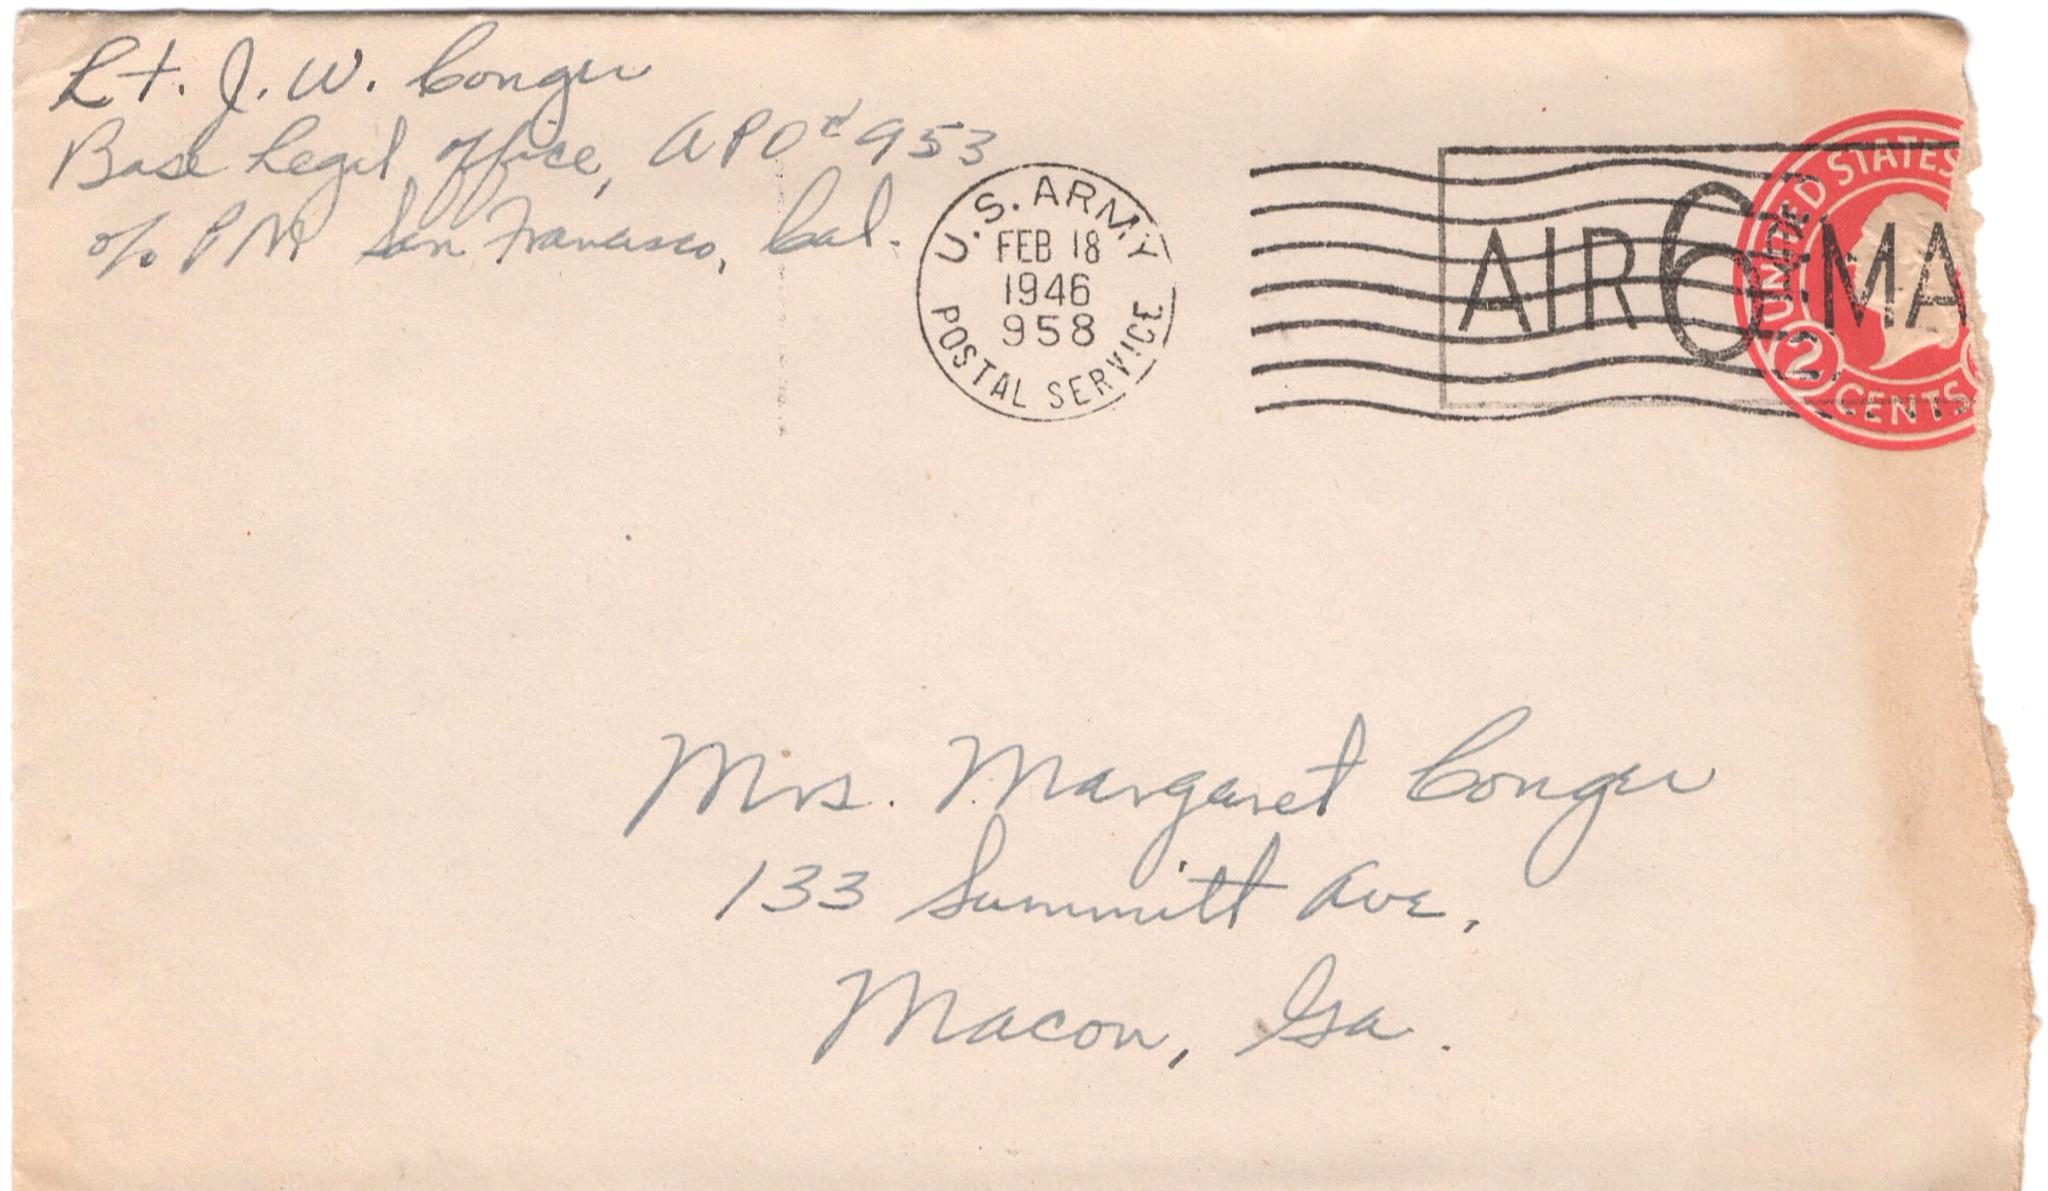 Lt. J. W. Conger
Base Legal Office, APO # 953
c/o PM San Francisco, Cal.
U.S. ARMY
FEB 18
1946
958
POSTAL SERVICE
AIR 6¢ MA
UNITED STATES
2
CENTS
Mrs. Margaret Conger
133 Summitt Ave,
Macon, Ga.